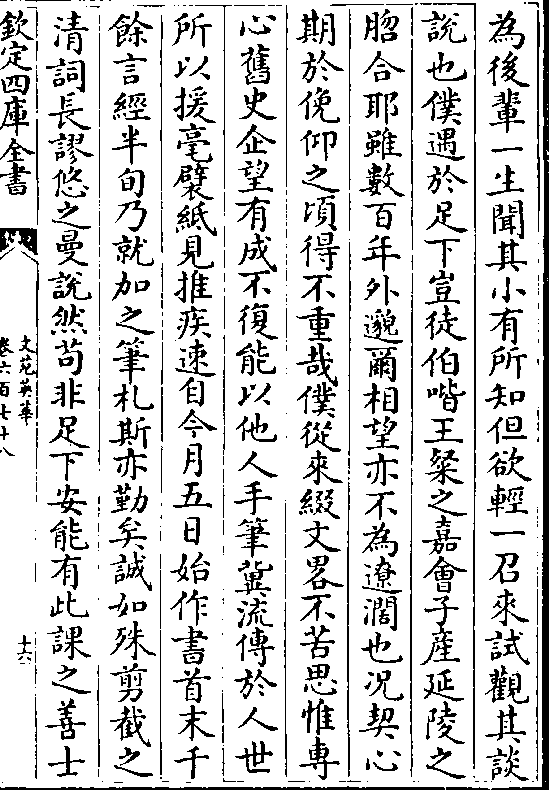 為後輩一生聞其小有所知但欲輕一召來試觀其談
説也僕遇於足下豈徒伯喈王粲之嘉會子產延陵之
脗合耶雖數百年外邈爾相望亦不為遼濶也况契心
期於俛仰之頃得不重哉僕從來綴文畧不苦思惟專
心舊史企望有成不復能以他人手筆冀流傳於人世
所以援毫襞紙見推疾速自今月五日始作書首末千
餘言經半旬乃就加之筆札斯亦勤矣誠如殊剪截之
清詞長謬悠之曼説然苟非足下安能有此課之善士
欽定四庫全書
文苑英華
卷六百七十八
十六